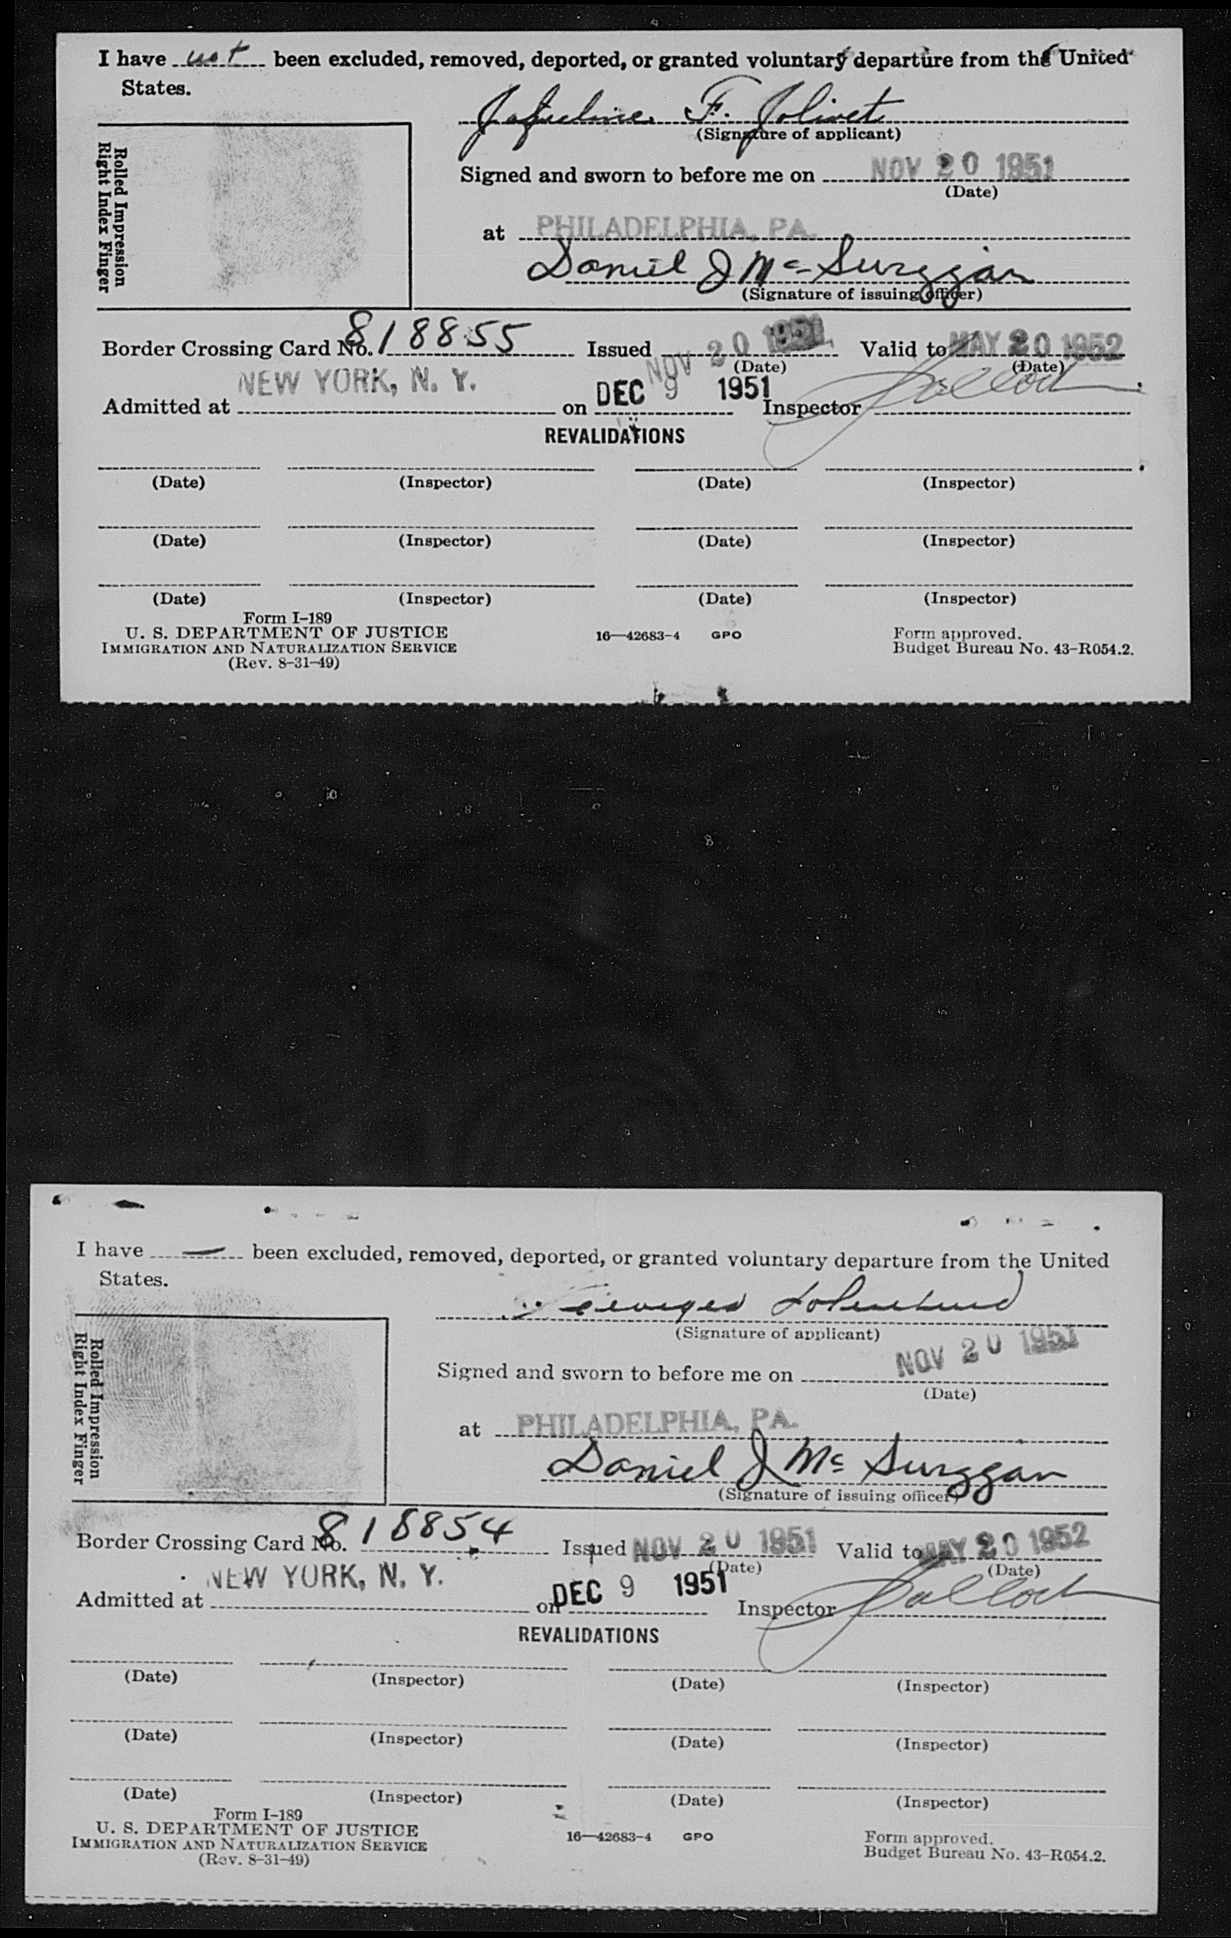 I have not been excluded, removed, deported, or granted voluntary departure from the United
States.
Jaqueline F. Jolivet
(Signature of applicant)
Rolled Impression
Right Index Finger
Signed and sworn to before me on NOV 20 1951
(Date)
at PHILADELPHIA, PA.
Daniel J Mc Surggan
(Signature of issuing officer)
Border Crossing Card No. 818855 Issued NOV 20 1951 Valid to MAY 20 1952
(Date) (Date)
Admitted at NEW YORK, N. Y. on DEC 9 1951 Inspector
REVALIDATIONS
(Date) (Inspector) (Date) (Inspector)
(Date) (Inspector) (Date) (Inspector)
(Date) (Inspector) (Date) (Inspector)
Form I-189
U. S. DEPARTMENT OF JUSTICE
IMMIGRATION AND NATURALIZATION SERVICE
(Rev. 8-31-49)
16—42683-4 GPO
Form approved.
Budget Bureau No. 43-R054.2.
I have — been excluded, removed, deported, or granted voluntary departure from the United
States.
Georges
(Signature of applicant)
Rolled Impression
Right Index Finger
Signed and sworn to before me on NOV 20 1951
(Date)
at PHILADELPHIA, PA.
Daniel J Mc Surggan
(Signature of issuing officer)
Border Crossing Card No. 818854 Issued NOV 20 1951 Valid to MAY 20 1952
(Date) (Date)
Admitted at NEW YORK, N. Y. on DEC 9 1951 Inspector
REVALIDATIONS
(Date) (Inspector) (Date) (Inspector)
(Date) (Inspector) (Date) (Inspector)
(Date) (Inspector) (Date) (Inspector)
Form I-189
U. S. DEPARTMENT OF JUSTICE
IMMIGRATION AND NATURALIZATION SERVICE
(Rev. 8-31-49)
16—42683-4 GPO
Form approved.
Budget Bureau No. 43-R054.2.